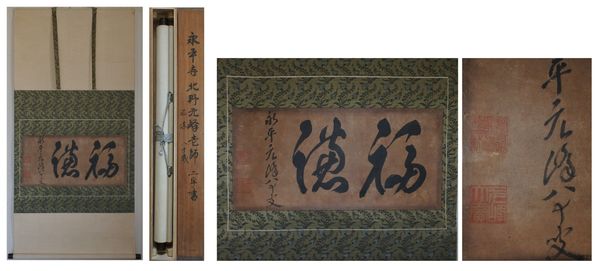 福德
永平元峰八十叟
永平寺 北野元峰老師 二字書
福德
永平元峰八十叟
平元峰八十叟